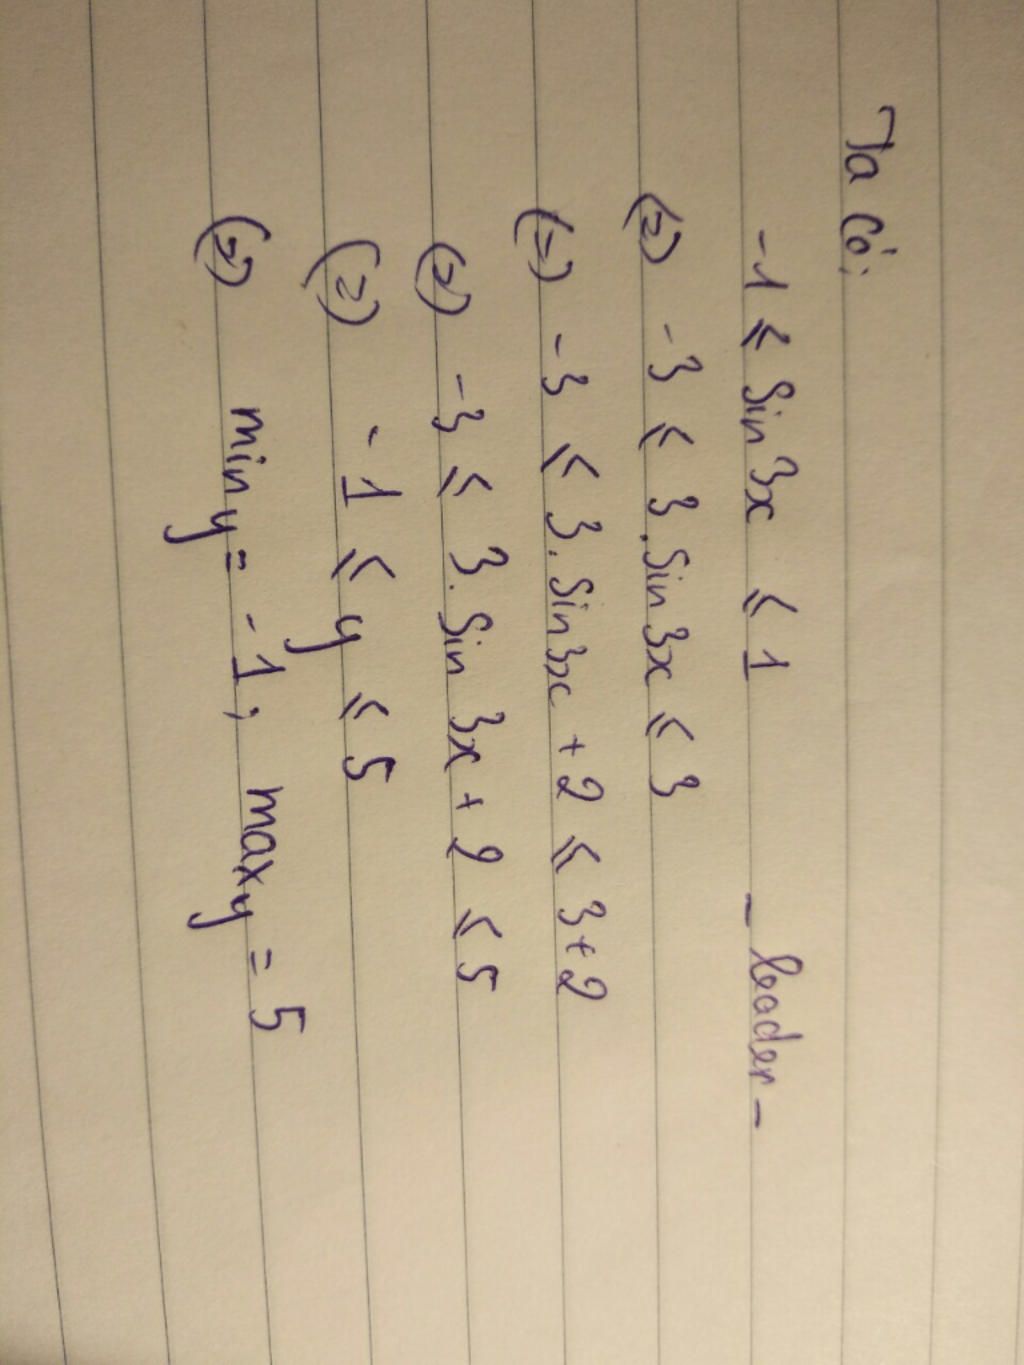 Ta có:
-1 ≤ sin 3x ≤ 1 - leader -
(=) -3 ≤ 3. sin 3x ≤ 3
(=) -3 ≤ 3. sin 3x + 2 ≤ 3+2
(=) -3 ≤ 3. sin 3x + 2 ≤ 5
(=) -1 ≤ y ≤ 5
(=) min y = -1; max y = 5